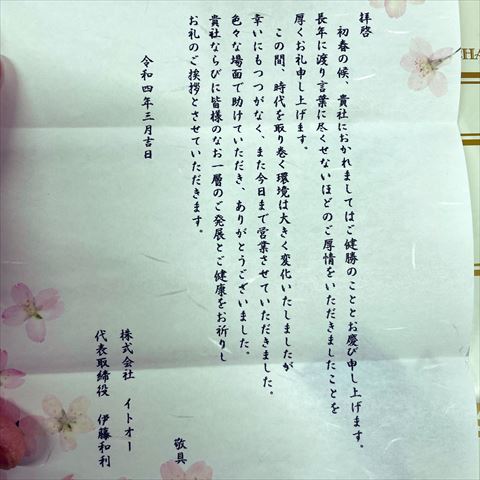 拝啓
初春の候、貴社におかれましてはご健勝のこととお慶び申し上げます。
長年に渡り言葉に尽くせないほどのご厚情をいただきましたことを
厚くお礼申し上げます。
この間、時代を取り巻く環境は大きく変化いたしましたが
幸いにもつつがなく、また今日まで営業させていただきました。
色々な場面で助けていただき、ありがとうございました。
貴社ならびに皆様のなお一層のご発展とご健康をお祈りし
お礼のご挨拶とさせていただきます。
敬具
令和四年三月吉日
株式会社 イトオー
代表取締役 伊藤和利